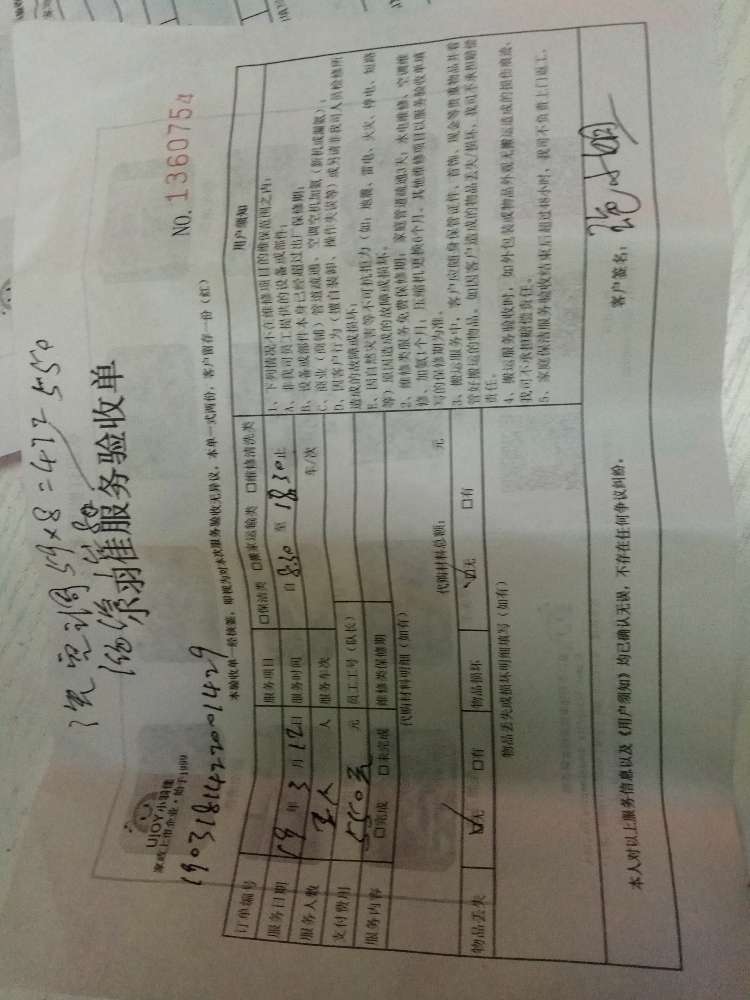 59×8=472 550
UJOY小羽佳
家政上市企业·始于1999
小羽佳服务验收单
NO. 1360754
本验收单一经核签，即视为对本次服务验收无异议，本单一式两份，客户留存一份（红）
订单编号
服务项目 □保洁类 □搬家运输类 □维修清洗类
服务日期 19 年 3 月 12 日 服务时间 自 8:30 至 18:30 止
服务人数 人 服务车次 车/次
支付费用 550 元 员工工号（队长）
服务内容 □完成 □未完成 维修类保修期
代购材料明细（如有）
代购材料总额： 元
物品丢失 ☑无 □有 物品损坏 ☑无 □有
物品丢失或损坏明细填写（如有）
用户须知
1、下列情况不在维修项目的维保范围之内：
A、非我司员工提供的设备或部件；
B、设备或部件本身已经超过出厂保修期；
C、商业（商铺）管道疏通、空调空机加氨（新机或漏氨）；
D、因客户行为（擅自装卸、操作失误等）或另请非我司人员检修所
造成的故障或损坏；
E、因自然灾害等不可抗拒力（如：地震、雷电、火灾、停电、短路
等）原因造成的故障或损坏。
2、维修类服务免费保修期：家庭管道疏通3天；水电维修、空调维
修、加氨1个月；压缩机更换6个月。其他维修项目以服务验收单填
写的保修期为准。
3、搬运服务中，客户应随身保管证件、首饰、现金等贵重物品并看
管好搬运的物品。如因客户造成的物品丢失/损坏，我司不承担赔偿
责任。
4、搬运服务验收时，如外包装或物品外观无搬运造成的损伤痕迹，
我司不承担赔偿责任。
5、家庭保洁服务验收结束后超过48小时，我司不负责上门返工。
本人对以上服务信息以及《用户须知》均已确认无误，不存在任何争议纠纷。
客户签名：